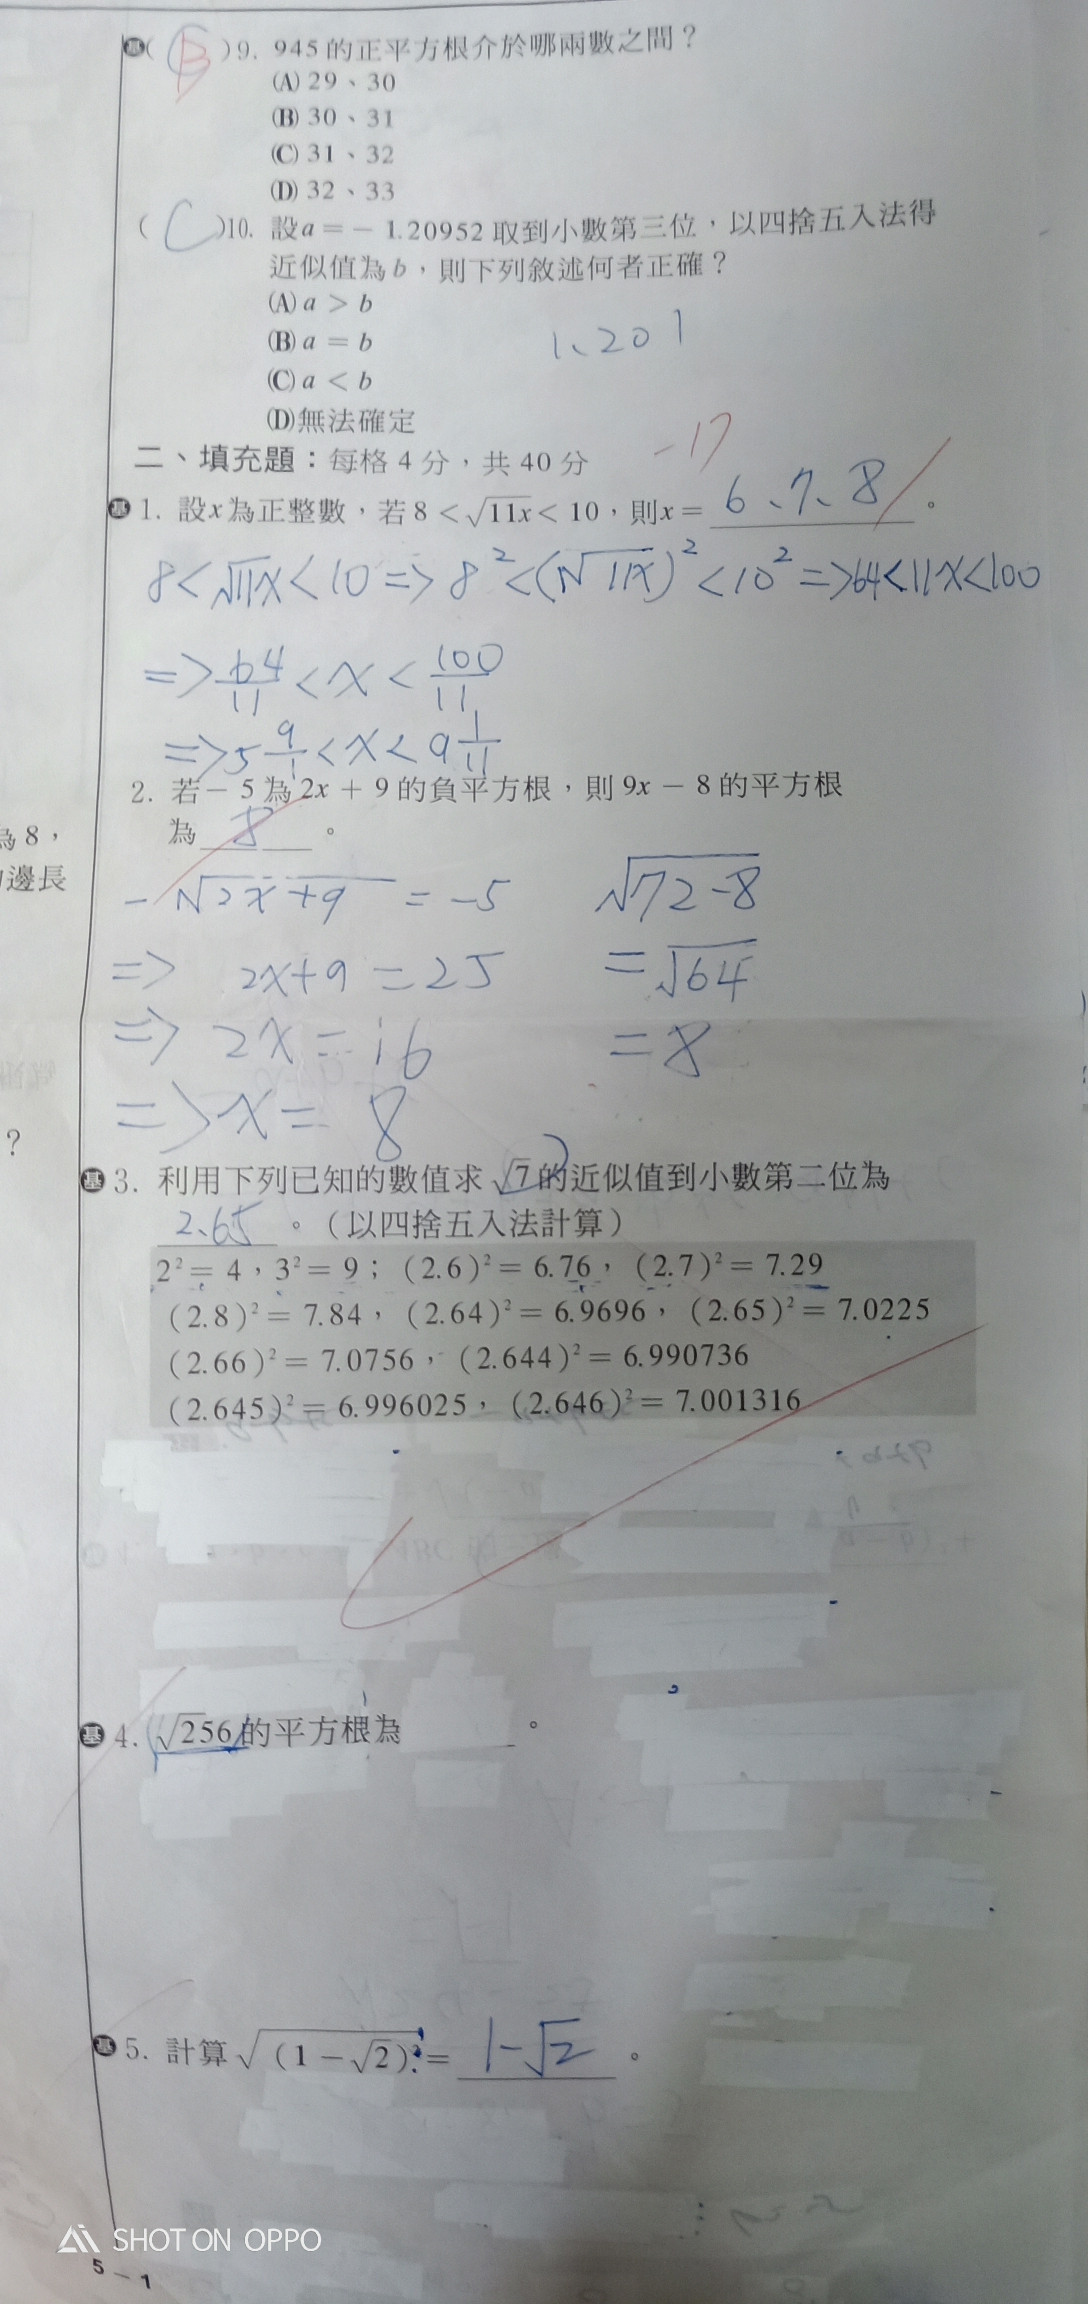 基( B )9. 945 的正平方根介於哪兩數之間？
(A) 29、30
(B) 30、31
(C) 31、32
(D) 32、33
( C )10. 設 a = − 1.20952 取到小數第三位，以四捨五入法得
近似值為 b，則下列敘述何者正確？
(A) a > b
(B) a = b
1、201
(C) a < b
(D)無法確定
二、填充題：每格 4 分，共 40 分
-17
基 1. 設 x 為正整數，若 8 < √11x < 10，則 x = 6、7、8 。
8<√11x<10=>8²<(√11x)²<10²=>64<11x<100
=>64/11<x<100/11
=>5 9/1<x<9 1/11
2. 若 − 5 為 2x + 9 的負平方根，則 9x − 8 的平方根
為 8 。
為 8，
的邊長
-√2x+9 = -5 √72-8
=> 2x+9 = 25 =√64
=> 2x = 16 = 8
=>x= 8
?
基 3. 利用下列已知的數值求 √7 的近似值到小數第二位為
2.65 。（以四捨五入法計算）
2² = 4，3² = 9； (2.6)² = 6.76， (2.7)² = 7.29
(2.8)² = 7.84， (2.64)² = 6.9696， (2.65)² = 7.0225
(2.66)² = 7.0756， (2.644)² = 6.990736
(2.645)² = 6.996025， (2.646)² = 7.001316
基 4. √256 的平方根為 。
基 5. 計算 √(1 − √2)² = 1-√2 。
SHOT ON OPPO
5 − 1